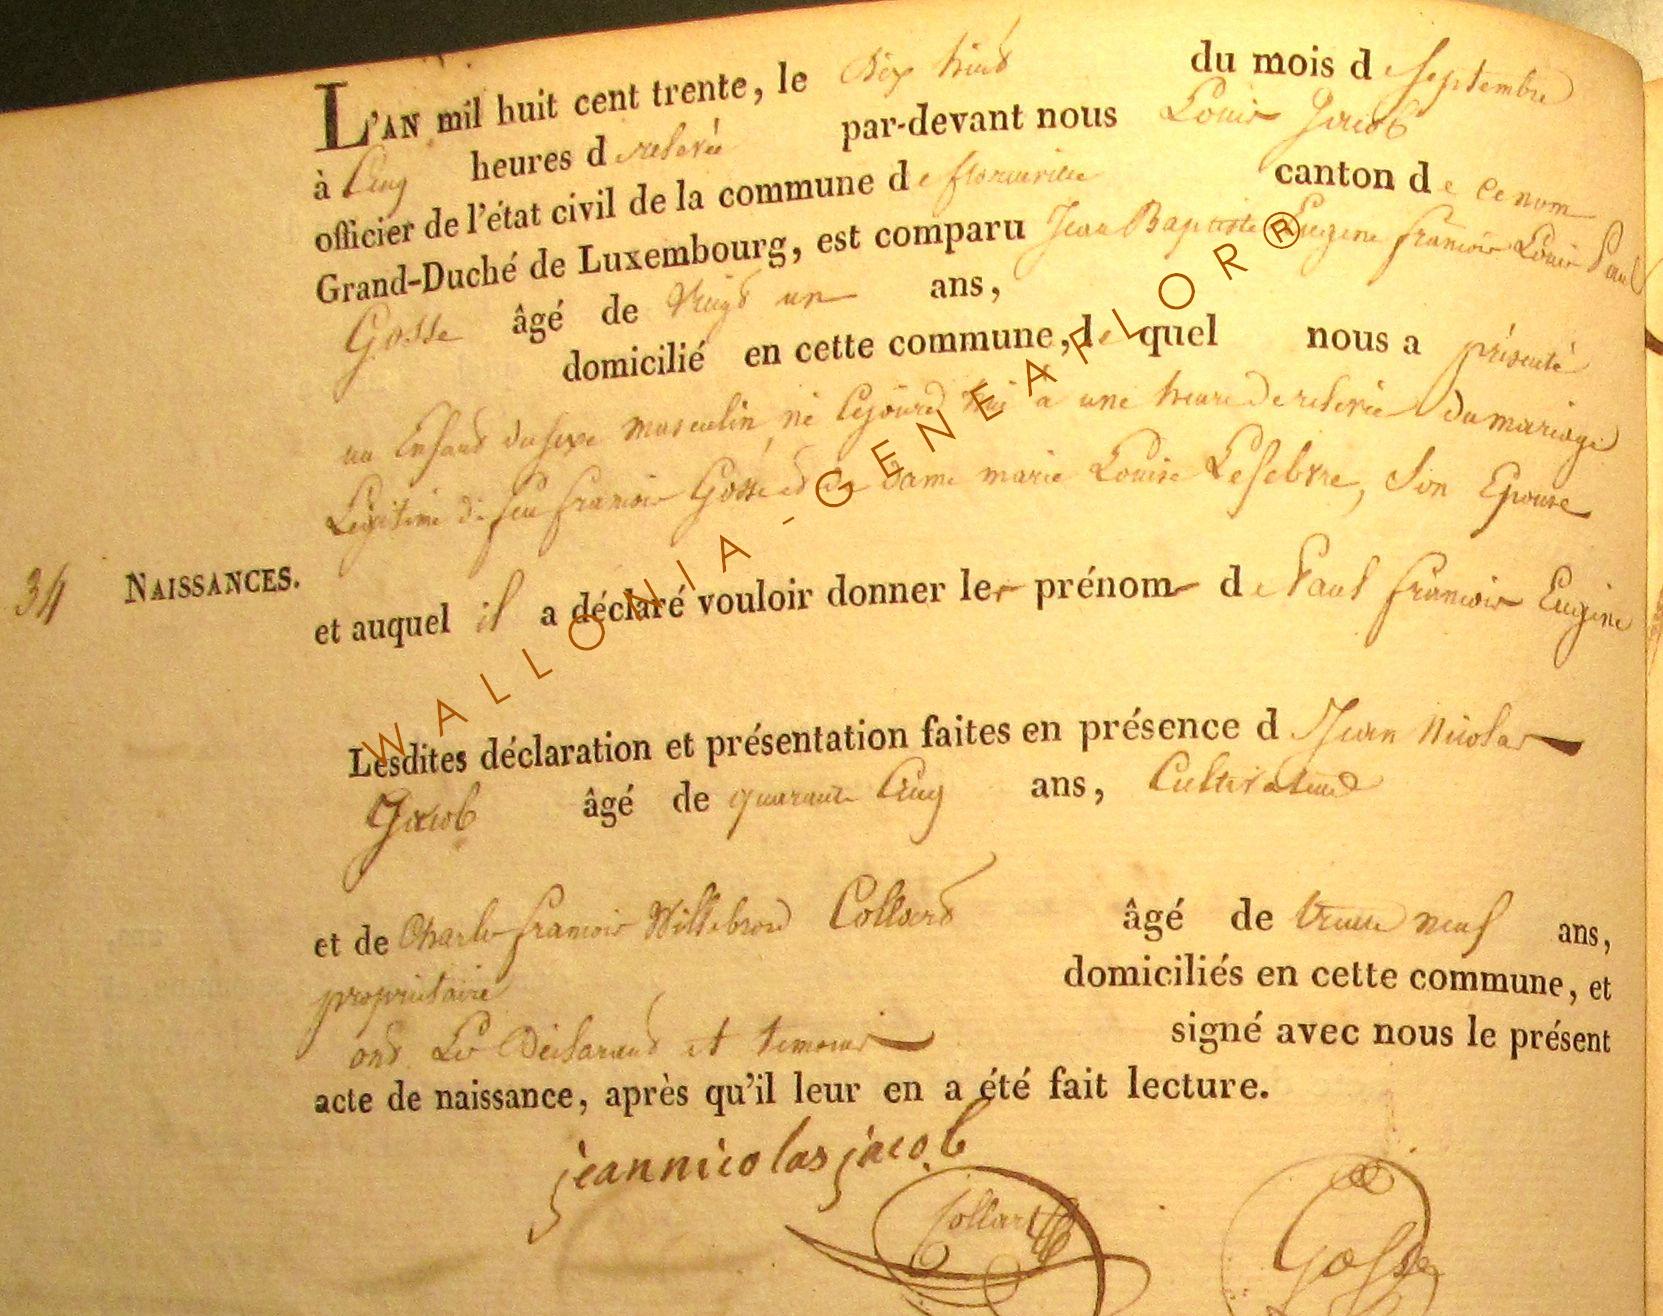 L'AN mil huit cent trente, le dix huit du mois de septembre
à Cinq heures de relevée par-devant nous Louis Jacob
officier de l'état civil de la commune de florenville canton de ce nom
Grand-Duché de Luxembourg, est comparu Jean Baptiste Eugene francois Louis Paul
Gosse âgé de vingt un ans,
domicilié en cette commune, lequel nous a présenté
un Enfant du sexe masculin, né cejourd'hui à une heure de relevée du mariage
Légitime de feu francois Gosse et de Dame marie Louise Lefebvre, Son Epouse
34 NAISSANCES.
et auquel il a déclaré vouloir donner les prénoms de Paul francois Eugene
Lesdites déclaration et présentation faites en présence d Jean Nicolas
Jacob âgé de quarante Cinq ans, Cultivateur
et de Charles francois Willebrord Collard âgé de trente neuf ans,
propriétaire domiciliés en cette commune, et
ont Les Déclarant et temoins signé avec nous le présent
acte de naissance, après qu'il leur en a été fait lecture.
jeannicolas jacob
Collard
Gosse
WALLONIA-GENEAFLOR®